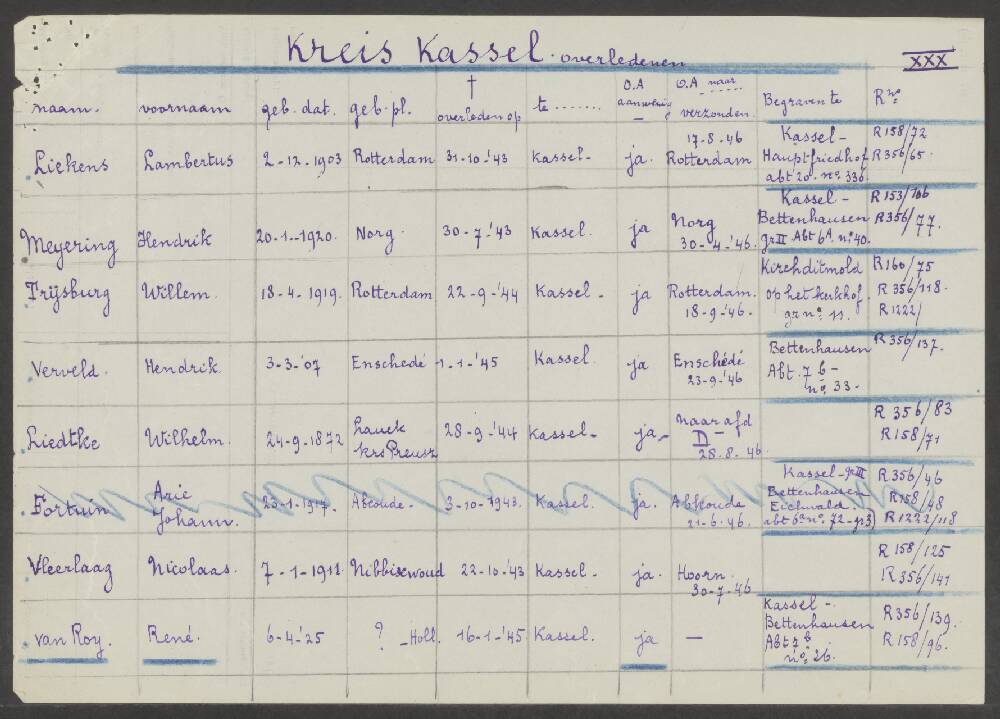 Kreis Kassel. overledenen XXX
naam. voornaam geb. dat. geb. pl. † overleden op te ....... O.A aanwezig O.A naar verzonden. Begraven te R no
Liekens Lambertus 2-12-1903 Rotterdam 31-10-'43 Kassel- ja. 17-8-46 Rotterdam Kassel- Hauptfriedhof abt 20. no. 336 R158/72 R356/65.
Meyering Hendrik 20-1-1920. Norg. 30-7-'43 Kassel. ja Norg 30-4-'46. Kassel- Bettenhausen gr II Abt 6A no 40. R153/106 R356/77.
Trijsburg Willem. 18-4-1919. Rotterdam 22-9-'44 Kassel- ja Rotterdam. 18-9-'46. Kirchditmold op het kerkhof. gr no. 11. R160/75 R356/118. R1222/
Verveld. Hendrik 3-3-'07 Enschedé 1-1-'45 Kassel. ja Enschédé 23-9-'46 Bettenhausen Abt. 7 b- no. 33. R356/137.
Liedtke Wilhelm. 24-9-1872 Lauck krs Preusz 28-9-'44 Kassel- ja- Naar afd D- 28.8.46 R 356/83 R158/71
Fortuin Arie Johann. 23-1-1917. Abcoude. 3-10-1943. Kassel. ja. Abkoude 21-6-46. Kassel-gr III Bettenhausen Eichwald. abt 6a no. 72-gr3) R356/46 R158/48 R1222/118
Vleerlaag Nicolaas. 7-1-1911 Nibbixwoud 22-10-'43 Kassel- ja. Hoorn. 30-7-46 R 158/125 R356/141
van Roy. René. 6-4-'25 ? -Holl. 16-1-'45 Kassel. ja - Kassel-. Bettenhausen Abt 7 b no. 26. R356/139. R 158/96.